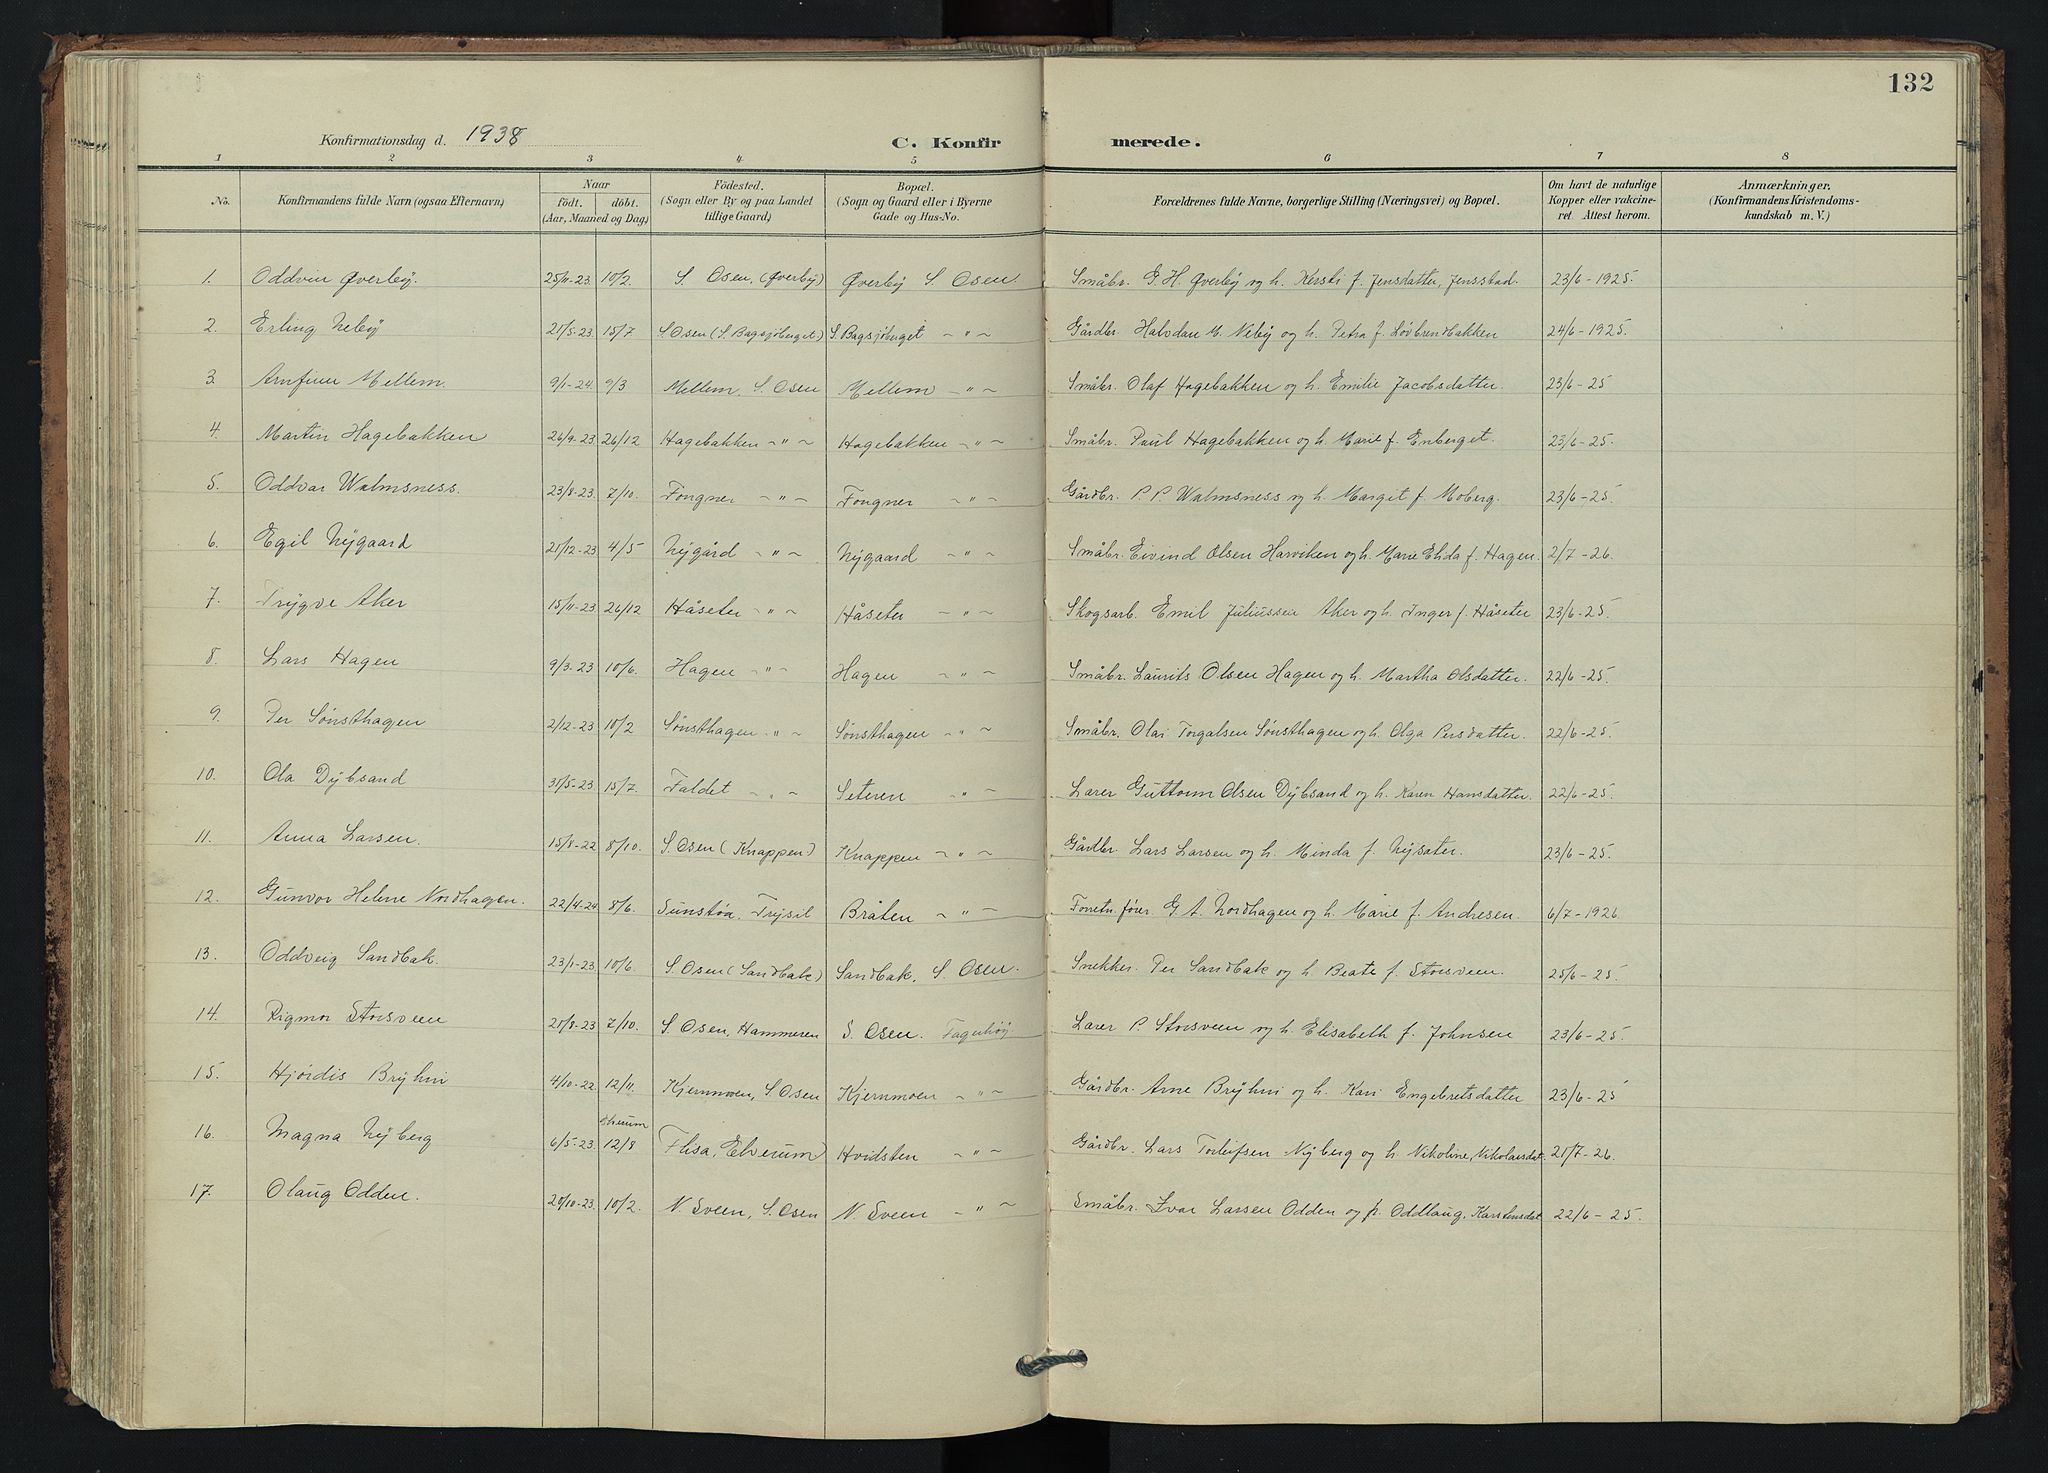 132
Konfirmationsdag d. 1938 C. Konfirmerede.
1 2 3 4 5 6 7 8
No. Konfirmandens fulde Navn (ogsaa Efternavn) Naar født. døbt. (Aar, Maaned og Dag) Fødested. (Sogn eller By og paa Landet tillige Gaard) Bopæl. (Sogn og Gaard eller i Byerne Gade og Hus-No. Forældrenes fulde Navne, borgerlige Stilling (Næringsvei) og Bopæl. Om havt de naturlige Kopper eller vakcineret Attest herom. Anmærkninger. (Konfirmandens Kristendomskundskab m. V.)
1. Oddvin Øverby. 25/11-23 10/2. S. Osen, (Øverby) Øverby S. Osen. Småbr. G. H. Øverby og h. Kersti f. Jensdatter, Jensstad. 23/6-1925.
2. Erling Neby 21/5-23 15/7 S. Osen (S. Bagsjøberget) S. Bagsjøberget -"- Gårdbr. Halvdan M. Neby og h. Petra f. Løvbrendbakken 24/6-1925.
3. Arnfinn Mellem. 9/1-24. 9/3 Mellem. S. Osen Mellem -"- Småbr. Olaf Hagebakken og h. Emilie Jacobsdatter. 23/6-25
4. Martin Hagebakken 26/9-23 26/12 Hagebakken -"- Hagebakken -"- Småbr. Paul Hagebakken og h. Marie f. Enberget. 23/6-25.
5. Oddvar Walmsness. 23/8-23. 7/10. Fongner -"- Fongner -"- Gårdbr. P. P. Walmsness og h. Margit f. Moberg. 23/6-25.
6. Egil Nygaard 21/12-23 4/5 Nygård -"- Nygaard -"- Småbr. Eivind Olsen Harviken og h. Marie Elida f. Hagen. 2/7-26.
7. Trygve Aker 15/11-23 26/12 Håseter -"- Håseter -"- Skogsarb. Emil Juliussen Aker og h. Inger f. Håseter 23/6-25.
8. Lars Hagen 9/3-23 10/6. Hagen -"- Hagen -"- Småbr. Laurits Olsen Hagen og h. Martha Olsdatter. 22/6-25.
9. Per Sønsthagen 2/12-23 10/2 Sønsthagen -"- Sønsthagen -"- Småbr. Olai Torgalsen Sønsthagen og h. Olga Persdatter. 22/6-25.
10. Ola Dybsand 31/5-23 15/7. Faldet -"- Seteren -"- Lærer Guttorm Olsen Dybsand og h. Karen Hansdatter. 22/6-25.
11. Anna Larsen. 15/8-22 8/10. S. Osen (Knappen) Knappen -"- Gårdbr. Lars Larsen og h. Minda f. Nysæter. 23/6-25.
12. Gunvor Helene Nordhagen. 22/4-24 8/6. Sunstøa. Trysil Bråten -"- Forretn.fører G. A. Nordhagen og h. Marie f. Andresen. 6/7-1926.
13. Oddveig Sandbak. 23/1-23 10/6. S. Osen (Sandbak) Sandbak, S. Osen. Snekker Per Sandbak og h. Beate f. Storsveen. 25/6-25.
14. Rigmor Storsveen 21/8-23 7/10. S. Osen, Hammeren S. Osen. Fagerhøy Lærer P. Storsveen og h. Elisabeth f. Johnsen 23/6-25.
15. Hjørdis Bryhni 4/10-22 12/11. Kjernmoen, S. Osen Kjernmoen -"- Gårdbr. Arne Bryhni og h. Kari Engebretsdatter 23/6-25
16. Magna Nyberg 6/5-23. Elverum 12/8 Flisa, Elverum) Hvidsten -"- Gårdbr. Lars Torleifsen Nyberg og h. Nikoline Nikolaisdat. 21/7-26.
17. Olaug Odden. 28/10-23. 10/2. N. Sveen, S. Osen N. Sveen -"- Småbr. Ivar Larsen Odden og h. Oddlaug. Karstensdat 22/6-25.